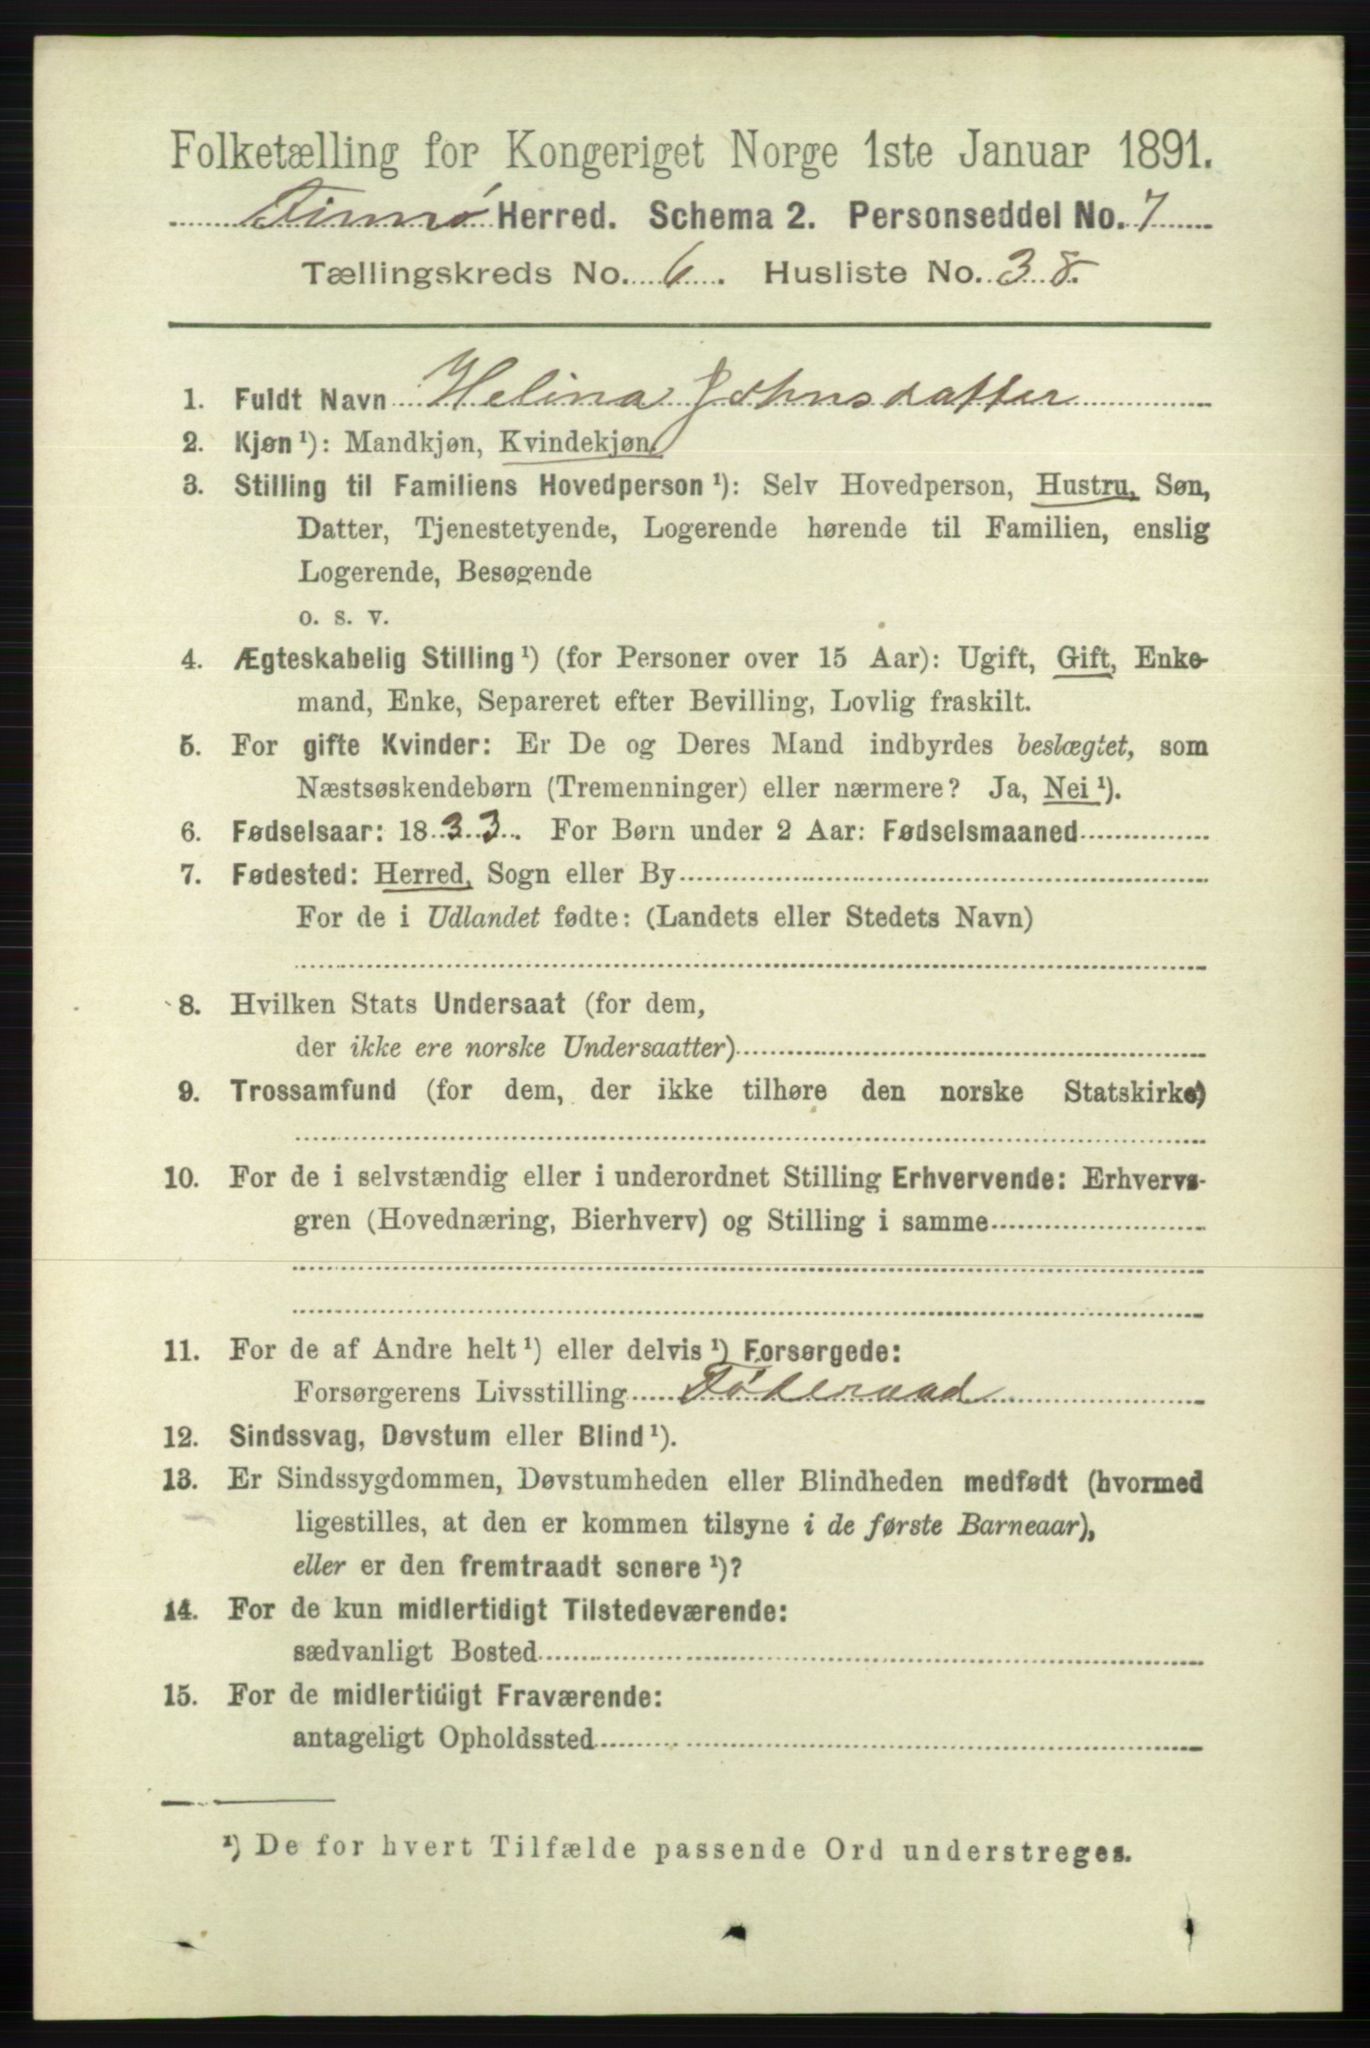 Folketælling for Kongeriget Norge 1ste Januar 1891.
Finnø Herred. Schema 2. Personseddel No. 7
Tællingskreds No. 6. Husliste No. 38.
1. Fuldt Navn Helina Johnsdatter
2. Kjøn¹): Mandkjøn, Kvindekjøn
3. Stilling til Familiens Hovedperson¹): Selv Hovedperson, Hustru, Søn,
Datter, Tjenestetyende, Logerende hørende til Familien, enslig
Logerende, Besøgende
o. s. v.
4. Ægteskabelig Stilling¹) (for Personer over 15 Aar): Ugift, Gift, Enke-
mand, Enke, Separeret efter Bevilling, Lovlig fraskilt.
5. For gifte Kvinder: Er De og Deres Mand indbyrdes beslægtet, som
Næstsøskendebørn (Tremenninger) eller nærmere? Ja, Nei¹).
6. Fødselsaar: 1833. For Børn under 2 Aar: Fødselsmaaned
7. Fødested: Herred, Sogn eller By
For de i Udlandet fødte: (Landets eller Stedets Navn)
8. Hvilken Stats Undersaat (for dem,
der ikke ere norske Undersaatter)
9. Trossamfund (for dem, der ikke tilhøre den norske Statskirke)
10. For de i selvstændig eller i underordnet Stilling Erhvervende: Erhvervs-
gren (Hovednæring, Bierhverv) og Stilling i samme
11. For de af Andre helt¹) eller delvis¹) Forsørgede:
Forsørgerens Livsstilling Føderaad
12. Sindssvag, Døvstum eller Blind¹).
13. Er Sindssygdommen, Døvstumheden eller Blindheden medfødt (hvormed
ligestilles, at den er kommen tilsyne i de første Barneaar),
eller er den fremtraadt senere¹)?
14. For de kun midlertidigt Tilstedeværende:
sædvanligt Bosted
15. For de midlertidigt Fraværende:
antageligt Opholdssted
¹) De for hvert Tilfælde passende Ord understreges.